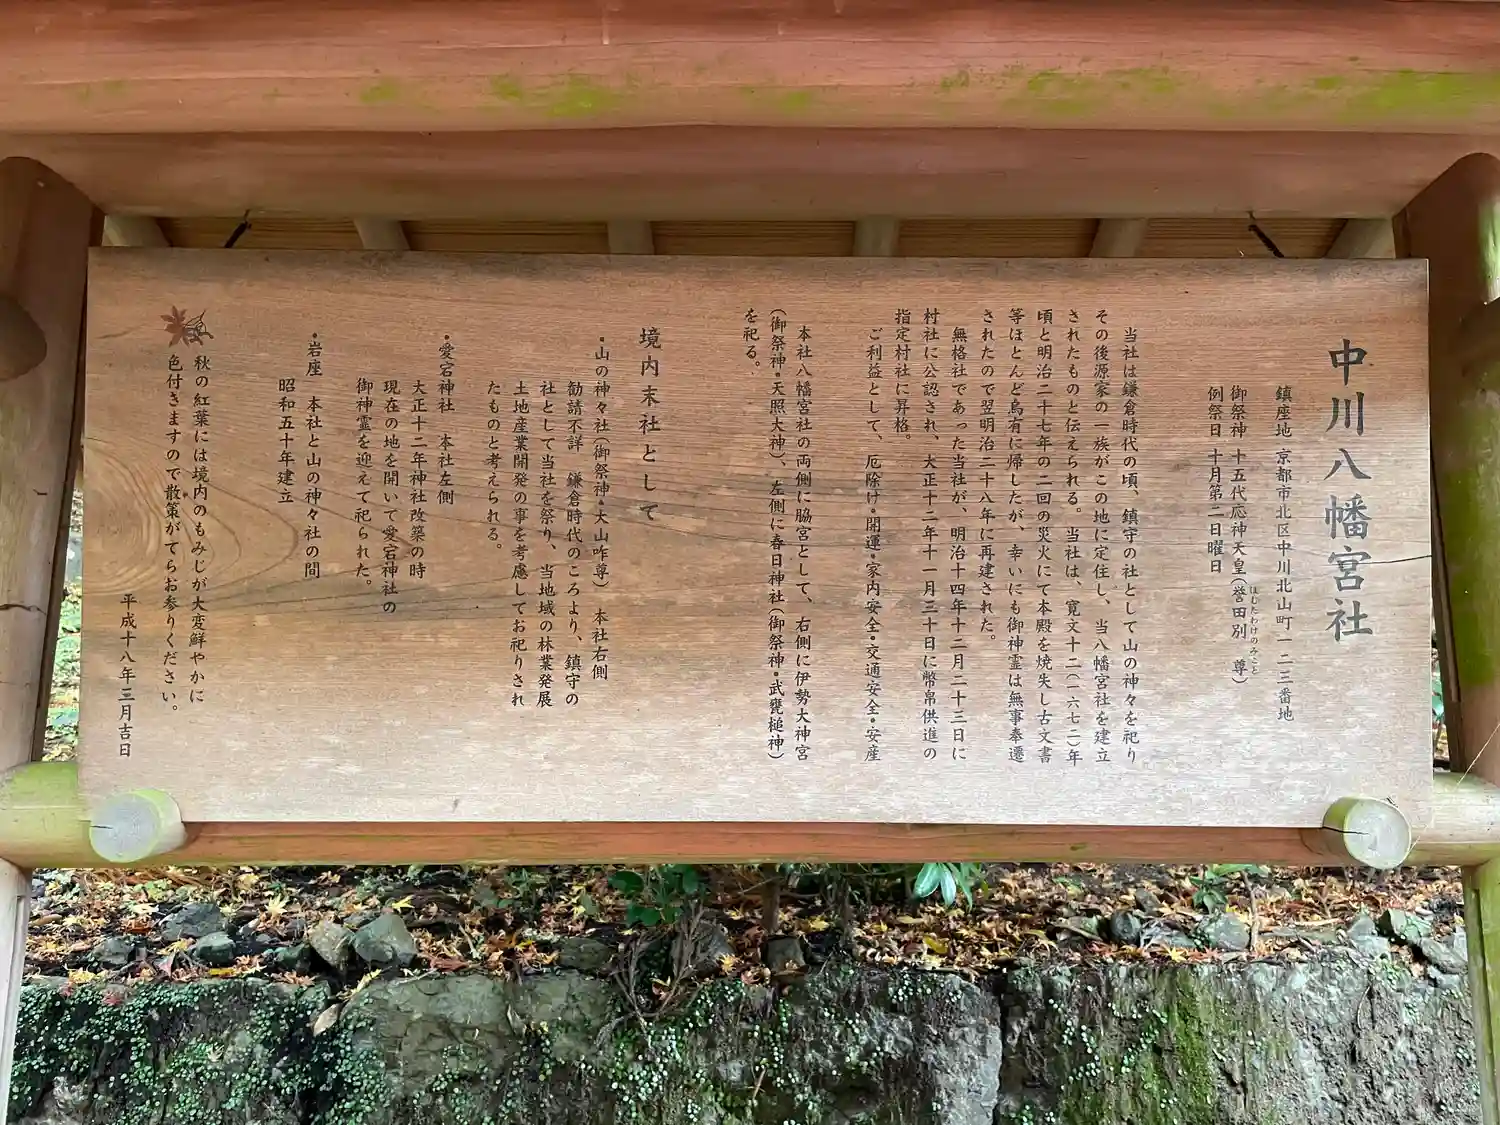 中川八幡宮社
鎮座地 京都市北区中川北山町一二三番地
御祭神 十五代応神天皇(誉田別 尊)
ほむたわけのみこと
例祭日 十月第二日曜日
当社は鎌倉時代の頃、鎮守の社として山の神々を祀り
その後源家の一族がこの地に定住し、当八幡宮社を建立
されたものと伝えられる。当社は、寛文十二(一六七二)年
頃と明治二十七年の二回の災火にて本殿を焼失し古文書
等ほとんど烏有に帰したが、幸いにも御神霊は無事奉遷
されたので翌明治二十八年に再建された。
無格社であった当社が、明治十四年十二月二十三日に
村社に公認され、大正十二年十一月三十日に幣帛供進の
指定村社に昇格。
ご利益として、厄除け・開運・家内安全・交通安全・安産
本社八幡宮社の両側に脇宮として、右側に伊勢大神宮
(御祭神・天照大神)、左側に春日神社(御祭神・武甕槌神)
を祀る。
境内末社として
・山の神々社(御祭神・大山咋尊) 本社右側
勧請不詳 鎌倉時代のころより、鎮守の
社として当社を祭り、当地域の林業発展
土地産業開発の事を考慮してお祀りされ
たものと考えられる。
・愛宕神社 本社左側
大正十二年神社改築の時
現在の地を開いて愛宕神社の
御神霊を迎えて祀られた。
・岩座 本社と山の神々社の間
昭和五十年建立
秋の紅葉には境内のもみじが大変鮮やかに
色付きますので散策がてらお参りください。
平成十八年三月吉日